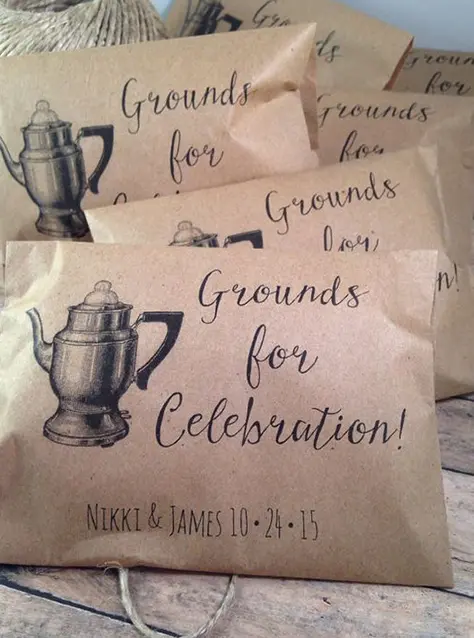 Grounds
for
Grounds
for
Grounds
for
Grounds
for
n!
Grounds
for
Celebration!
NIKKI & JAMES 10 • 24 • 15